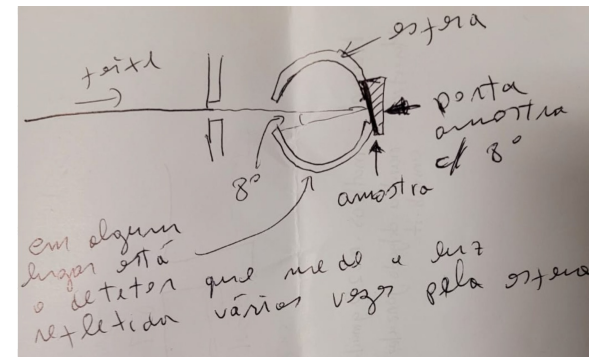 feixe
esfera
porta
amostra
c/ 8°
8°
amostra
em algum
lugar está
o detetor que mede a luz
refletida várias vezes pela esfera